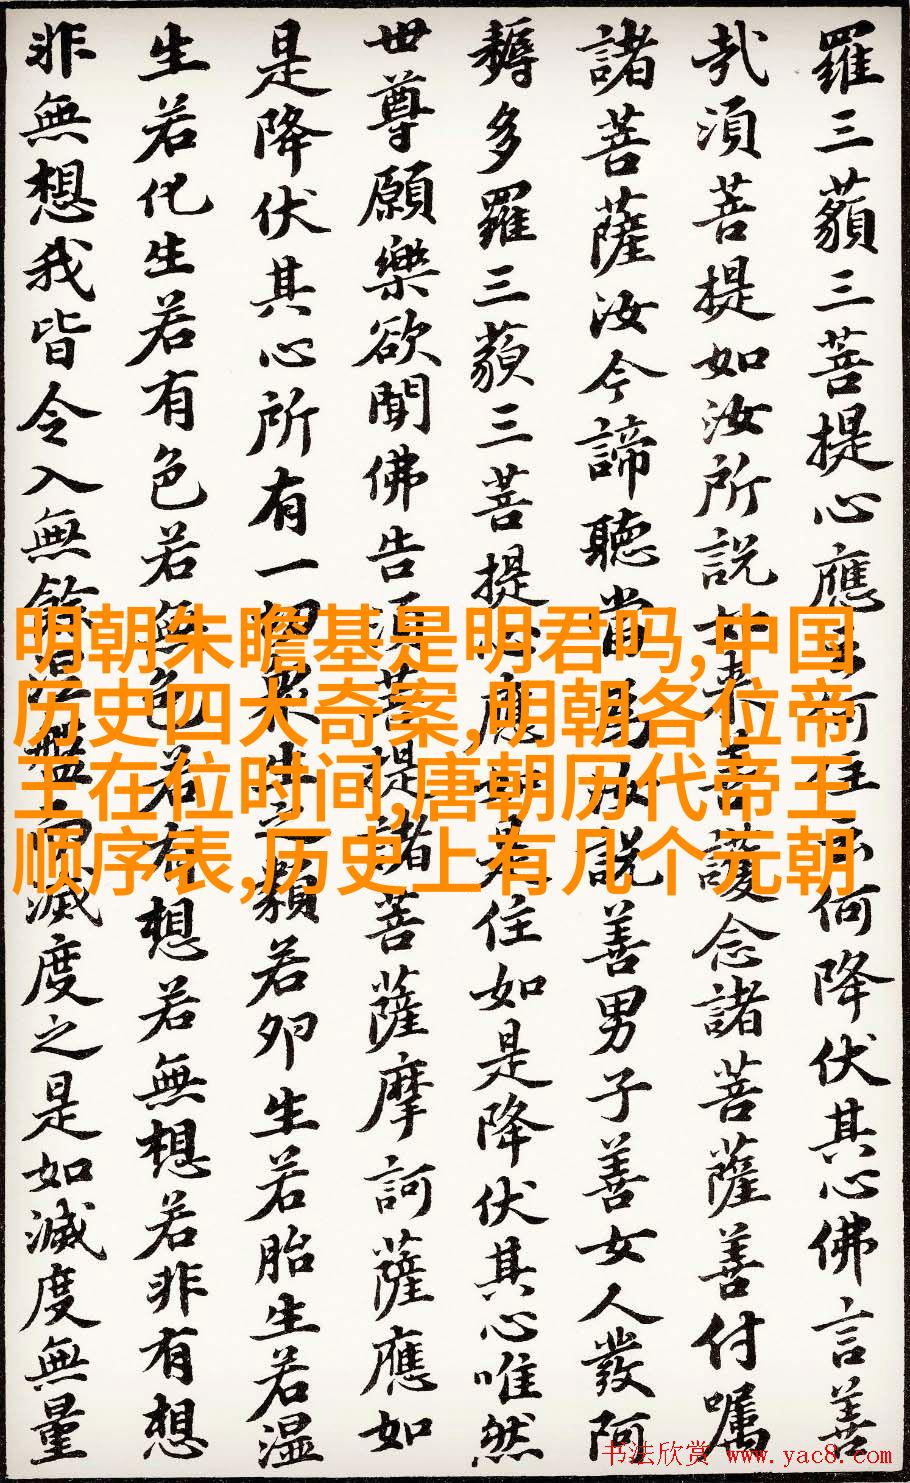 羅三藐三菩提心應云何住云何降伏其心佛言善
哉須菩提如汝所說如來善護念諸菩薩善付嘱
諸菩薩汝今諦聽當為汝説善男子善女人發阿
耨多羅三藐三菩提心應如是住如是降伏其心唯然
世尊願樂欲聞佛告須菩提諸菩薩摩訶薩應如
是降伏其心所有一切眾生之類若卵生若胎生若湿
生若化生若有色若無色若有想若無想若非有想
非無想我皆令入無餘涅槃而滅度之是如滅度無量
明朝朱瞻基是明君吗,中国
历史四大奇案,明朝各位帝
王在位时间,唐朝历代帝王
顺序表,历史上有几个元朝
书法欣赏 www.yac8.com